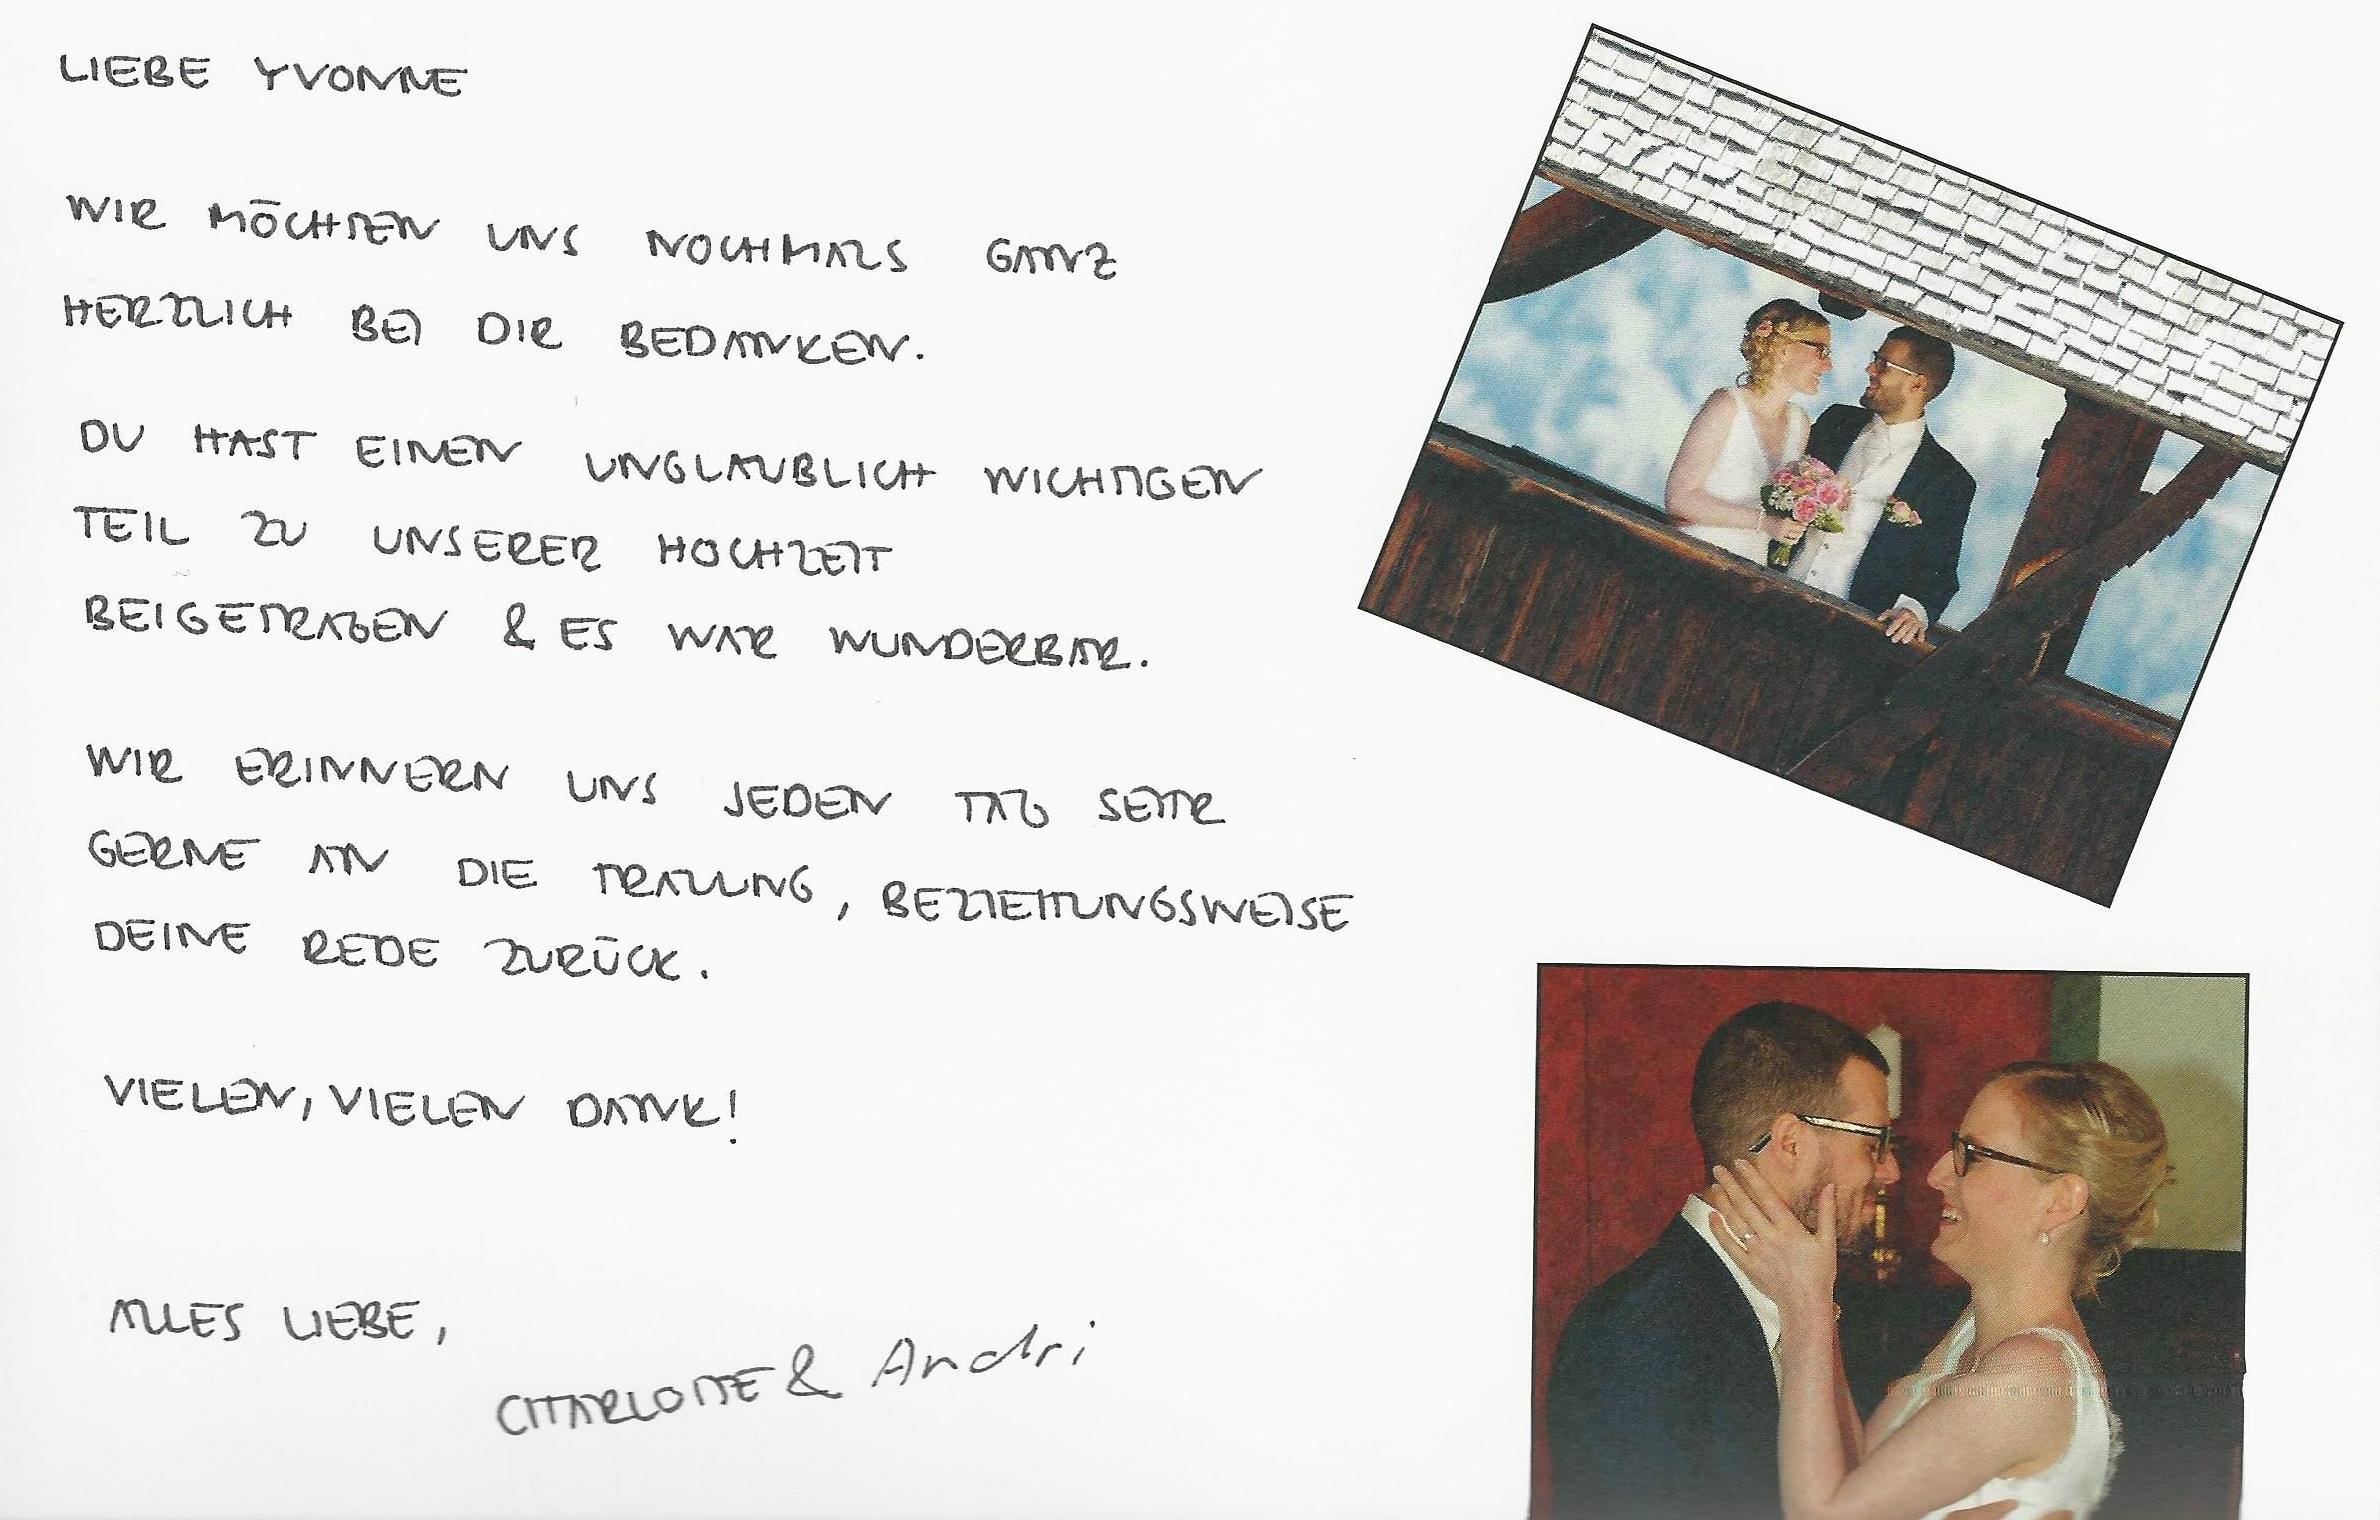 LIEBE YVONNE
WIR MÖCHTEN UNS NOCHMALS GANZ
HERZLICH BEI DIR BEDANKEN.
DU HAST EINEN UNGLAUBLICH WICHTIGEN
TEIL ZU UNSERER HOCHZEIT
BEIGETRAGEN & ES WAR WUNDERBAR.
WIR ERINNERN UNS JEDEN TAG SEHR
GERNE AN DIE TRAUUNG, BEZIEHUNGSWEISE
DEINE REDE ZURÜCK.
VIELEN, VIELEN DANK!
ALLES LIEBE,
CHARLOTTE & Andri